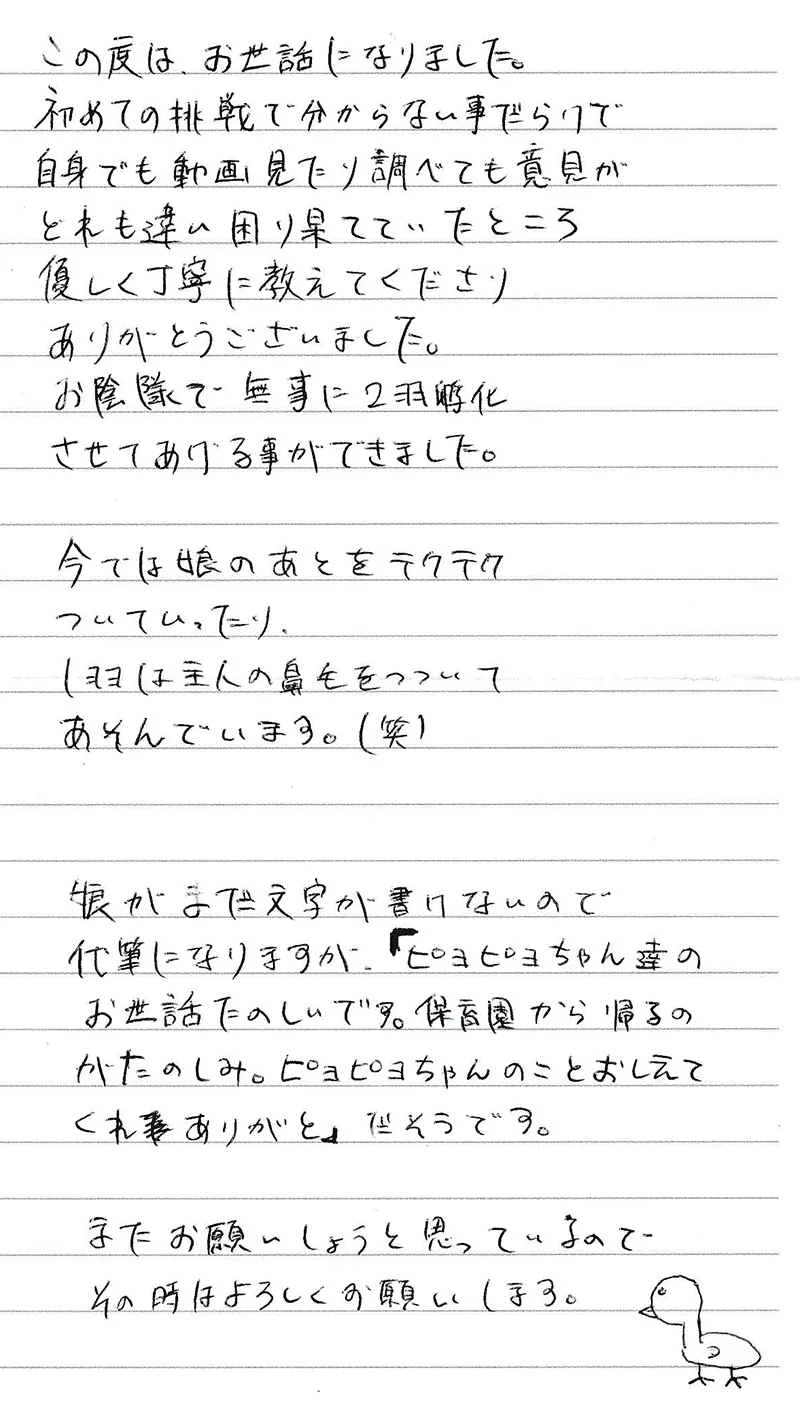 この度は、お世話になりました。
初めての挑戦で分からない事だらけで
自身でも動画見たり調べても意見が
どれも違い困り果てていたところ
優しく丁寧に教えてくださり
ありがとうございました。
お陰様で無事に2羽孵化
させてあげる事ができました。
今では娘のあとをテクテク
ついていったり、
1羽は主人の鼻毛をつついて
あそんでいます。(笑)
娘がまだ文字が書けないので
代筆になりますが、「ピヨピヨちゃん達の
お世話たのしいです。保育園から帰るの
がたのしみ。ピヨピヨちゃんのことおしえて
くれてありがと」だそうです。
またお願いしようと思っているので
その時はよろしくお願いします。